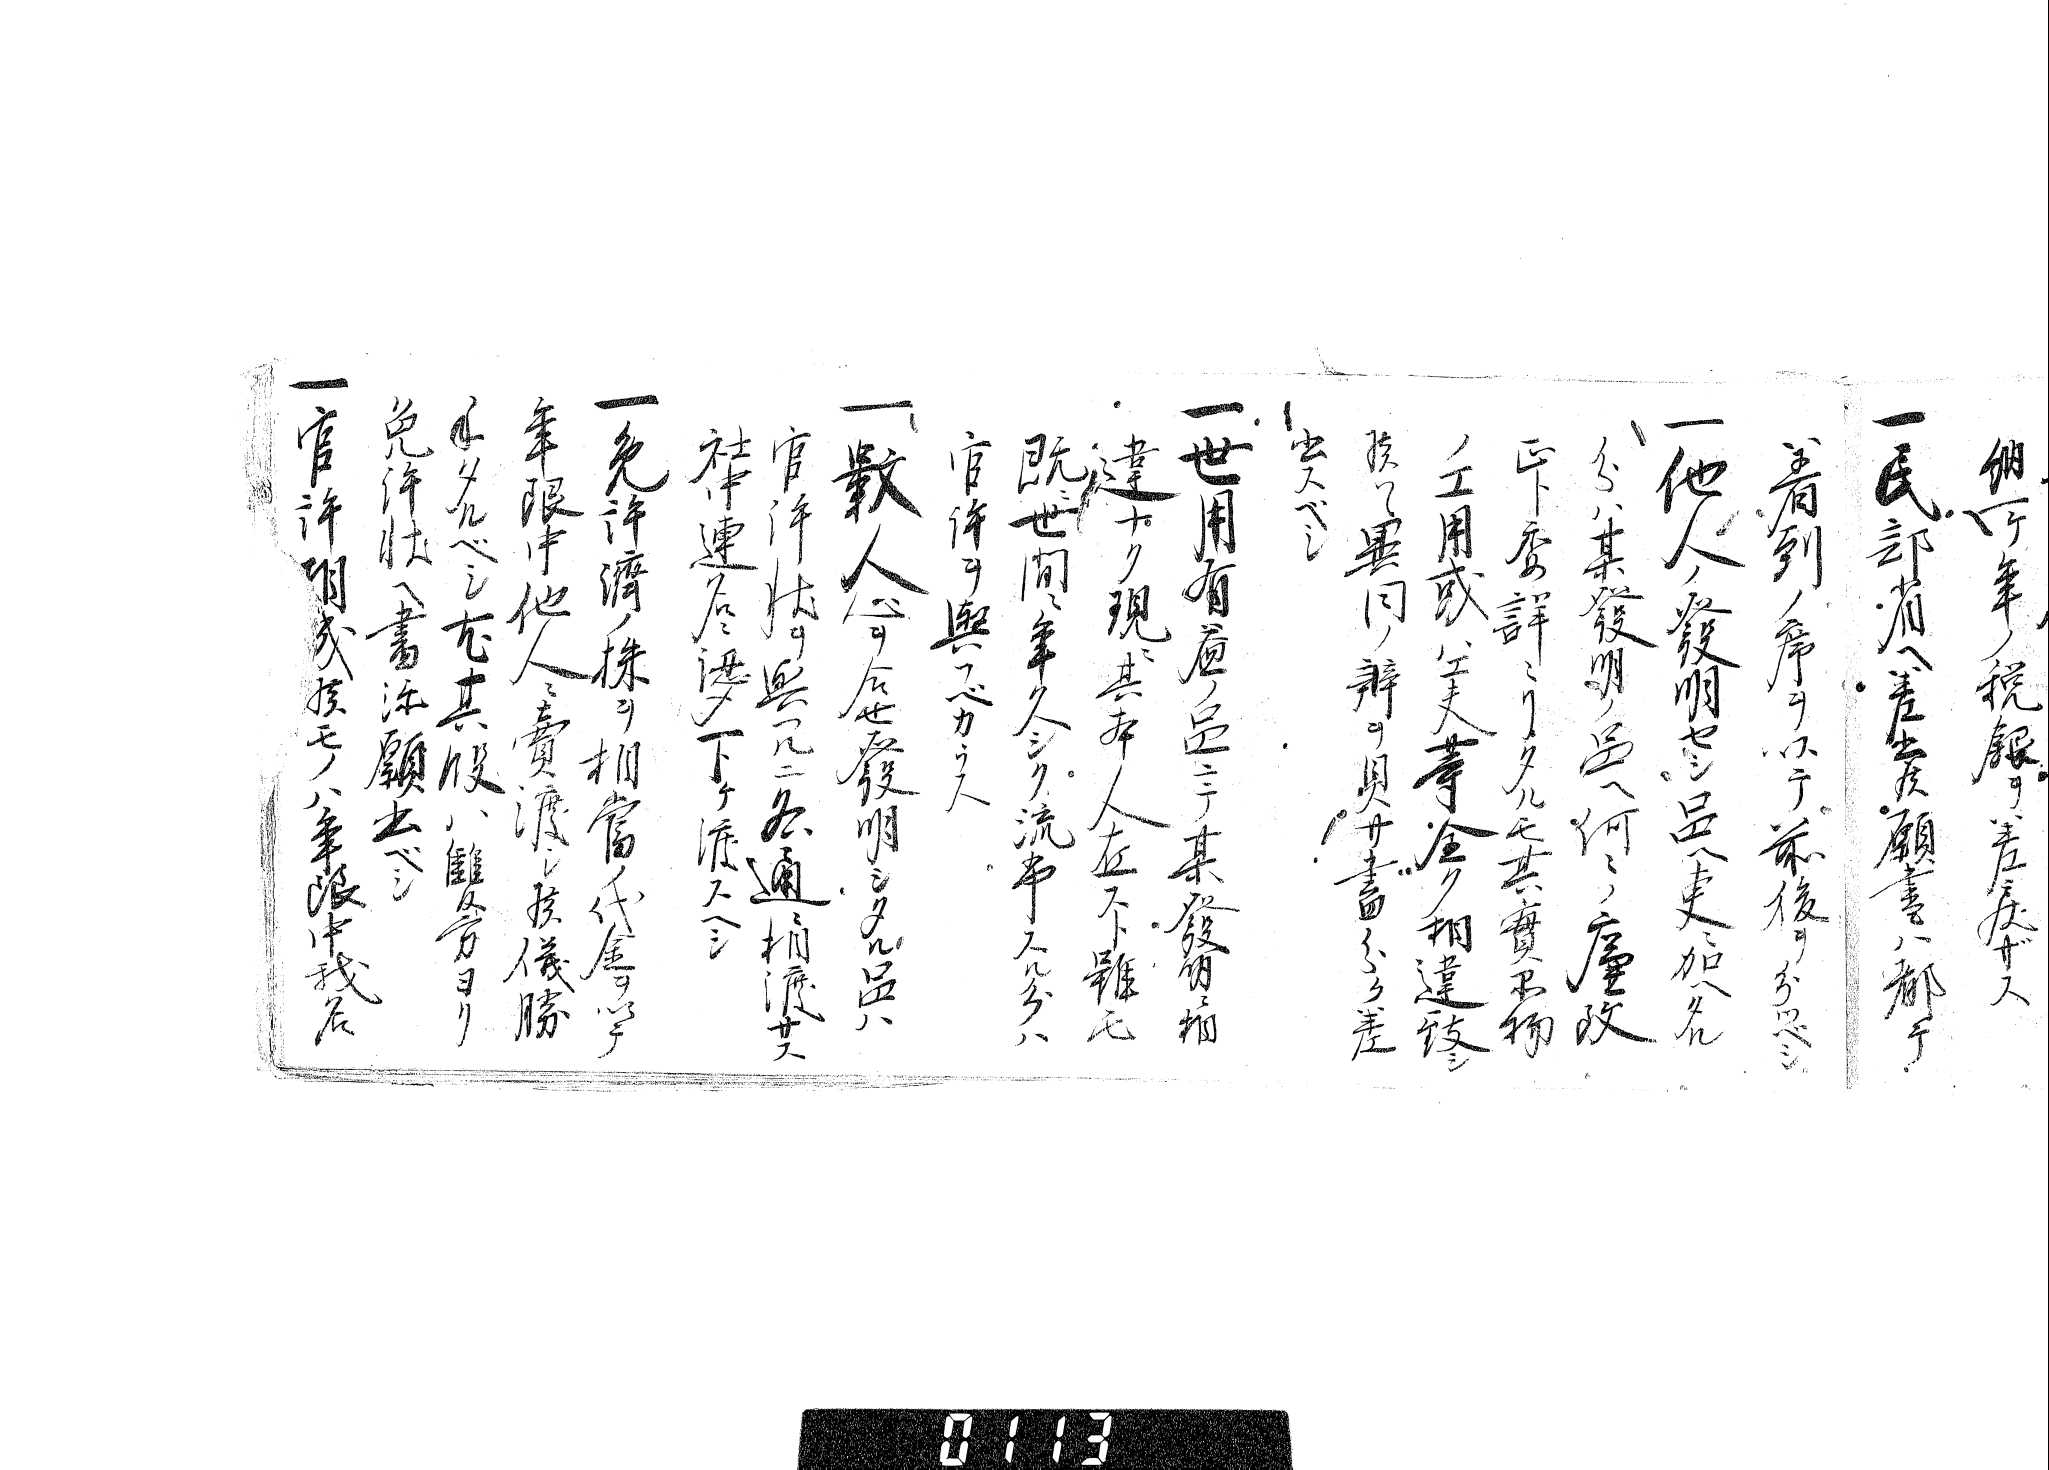 納一ケ年ノ税銀ヲハ差戻サス
一民部省ヘ差出候願書ハ都テ
着到ノ席ヲ以テ前後ヲ分ツベシ
一他人ノ發明セシ品ヘ更ニ加ヘタル
分ハ某發明ノ品ヘ何々ノ廉改
正ト委詳ミリタルモ其實器物
ノ工用或ハ工夫等全ク相違致シ
候ハヽ異同ノ辨ヲ具サ書分ケ差
出スベシ
一世用有益ノ品ニテ某發明ニ相
違ナク現ニ其本人在スト雖モ
既ニ世間ニ年久シク流布スル分ハ
官許ヲ與フベカラス
一數人ヲ合セ發明シタル品ハ
官許状ヲ與フルニ各通ニ相渡サス
社中連名ニ認メ下ケ渡スヘシ
一免許濟ノ株ヲ相當ノ代金ヲ以テ
年限中他人ニ賣渡シ候儀勝
手タルベシ尤其段ハ雙方ヨリ
免許状ヘ書添願出ベシ
一官許相成候モノハ年限中我名
0113